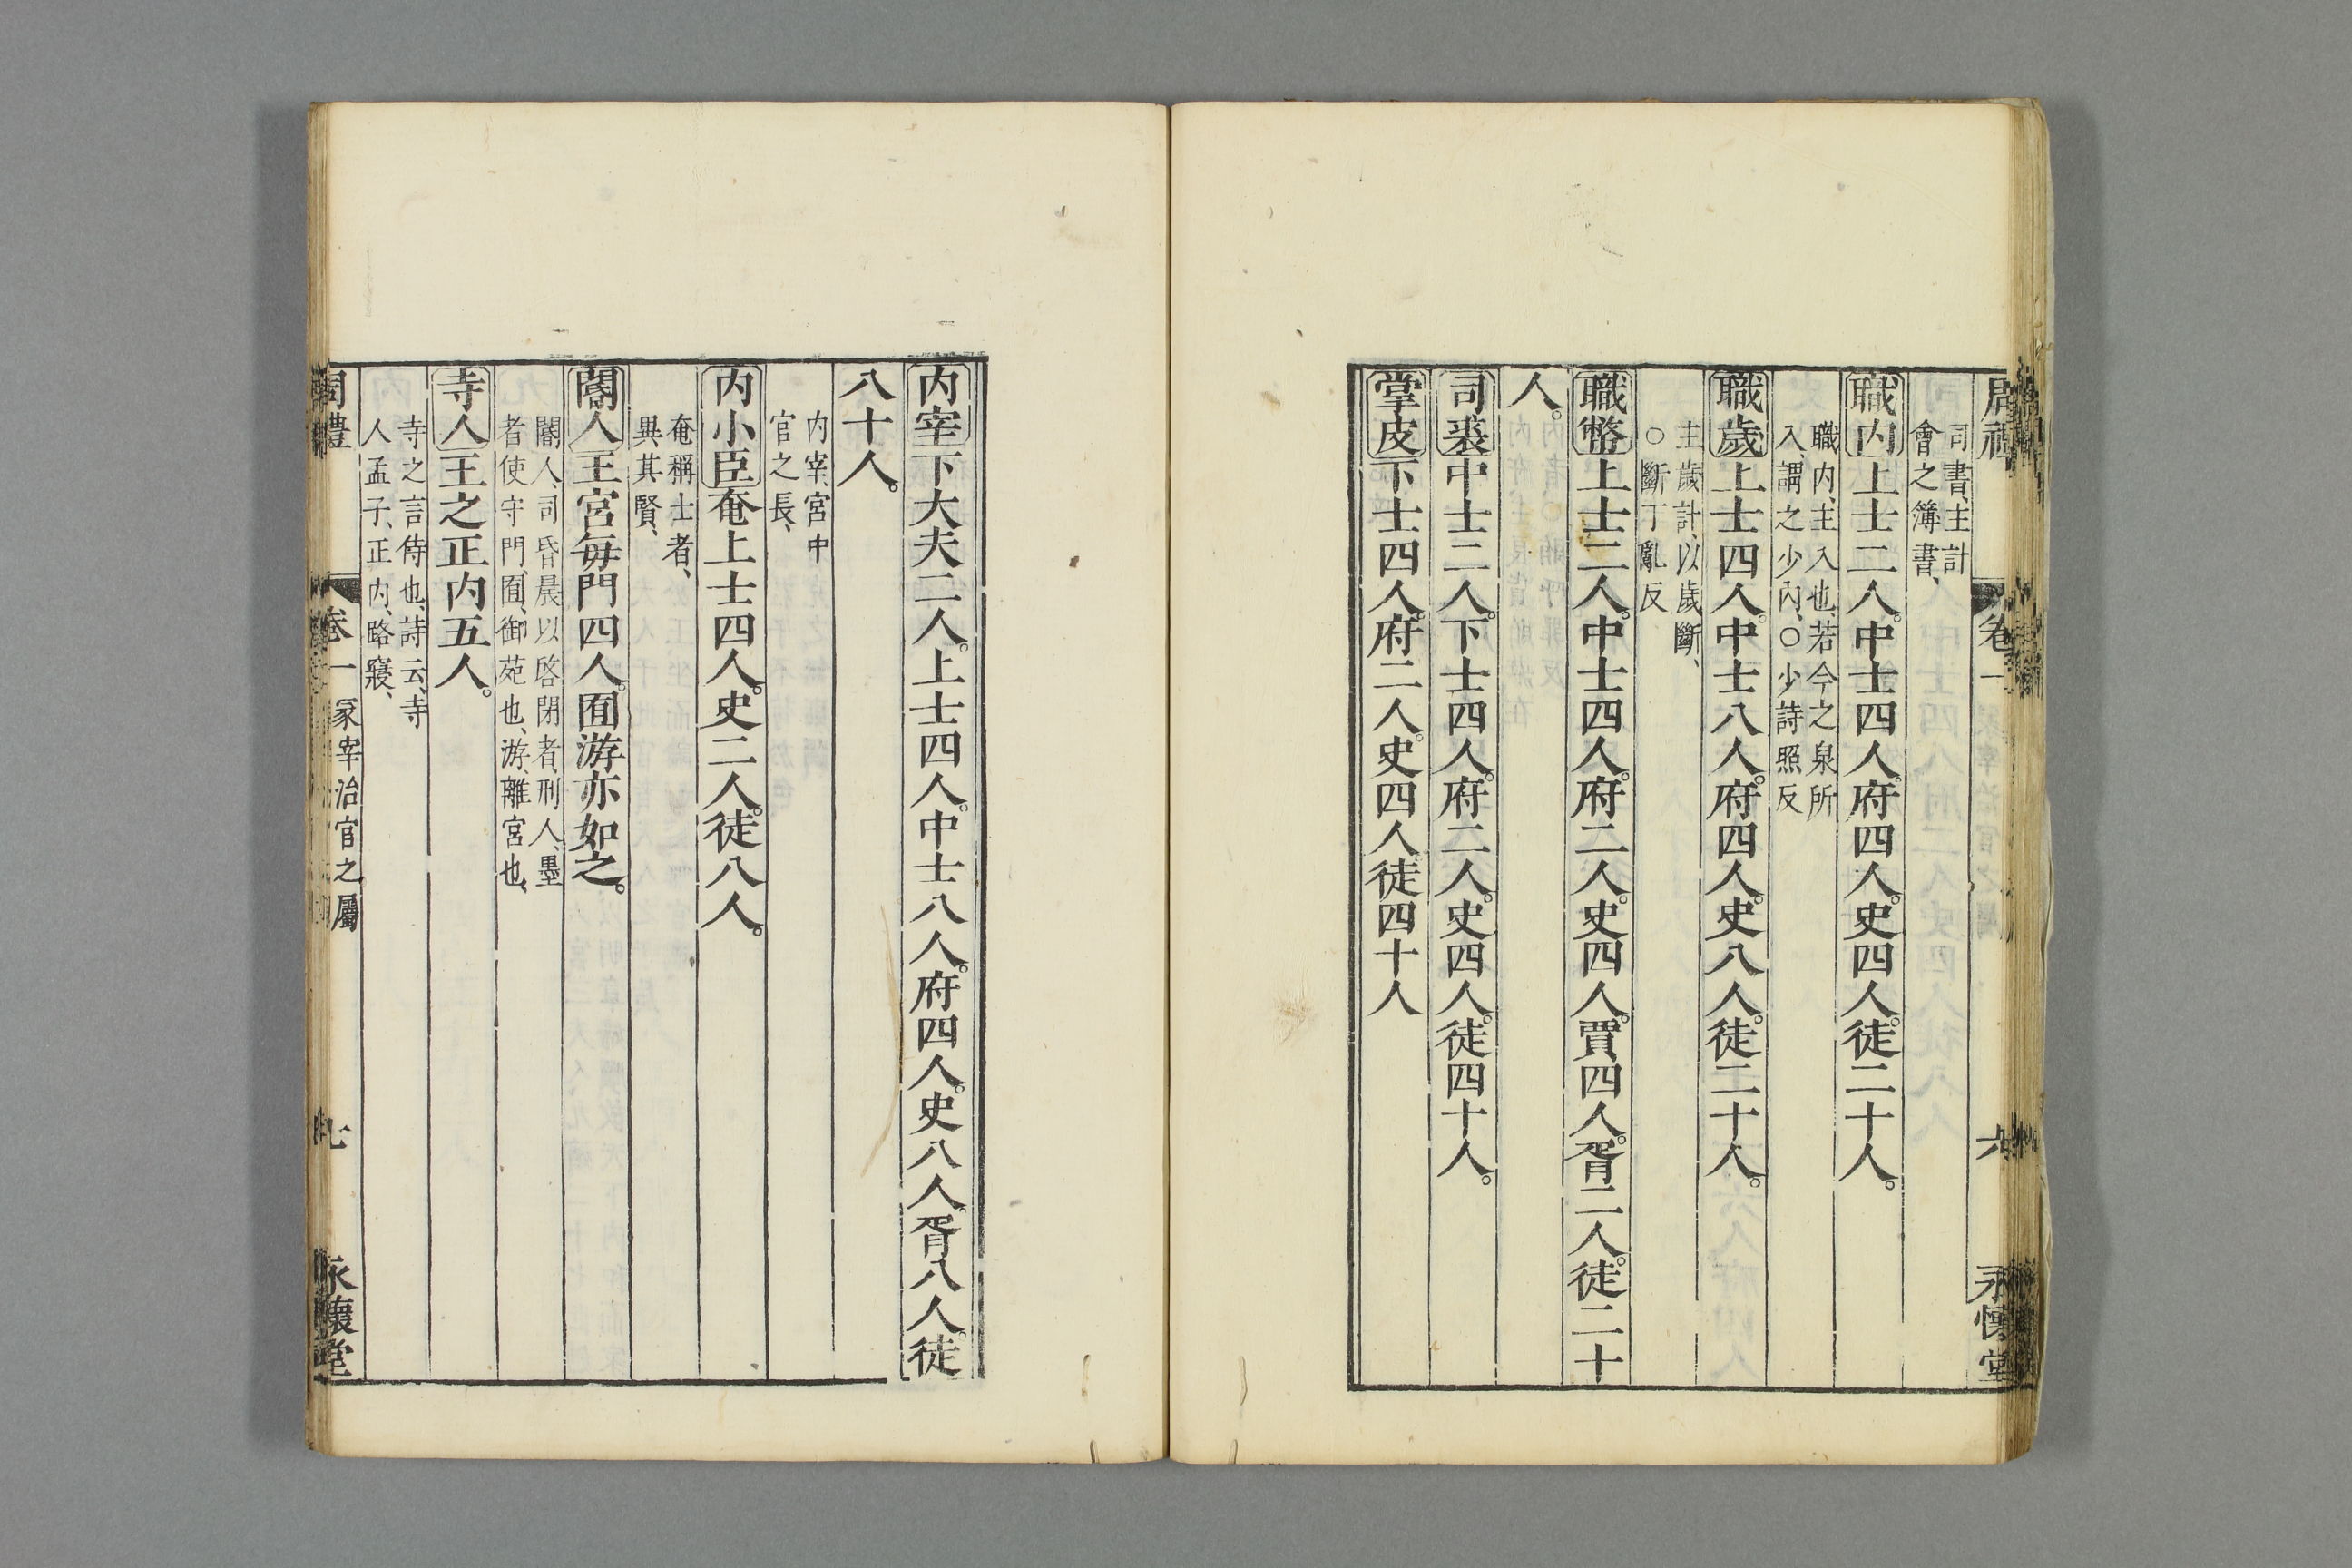 周禮
卷一
六
永懷堂
司書、主計
會之簿書、
職内上士二人。中士四人。府四人。史四人。徒二十人。
職内、主入也、若今之泉所
入、謂之少内、○少詩照反
職歲上士四人。中士八人。府四人。史八人。徒二十人。
主歲計、以歲斷、
○斷丁亂反
職幣上士二人。中士四人。府二人。史四人。賈四人。胥二人。徒二十
人。
司裘中士二人。下士四人。府二人。史四人。徒四十人。
掌皮下士四人。府二人。史四人。徒四十人
内宰下大夫二人。上士四人。中士八人。府四人。史八人。胥八人。徒
八十人。
内宰、宮中
官之長、
内小臣奄上士四人。史二人。徒八人。
奄稱士者、
異其賢、
閽人王宮每門四人。囿游亦如之。
閽人、司昏晨以啓閉者、刑人、墨
者使守門、囿、御苑也、游、離宮也、
寺人王之正内五人。
寺之言侍也、詩云、寺
人孟子、正内、路寢、
周禮
卷一
冢宰治官之屬
七
永懷堂